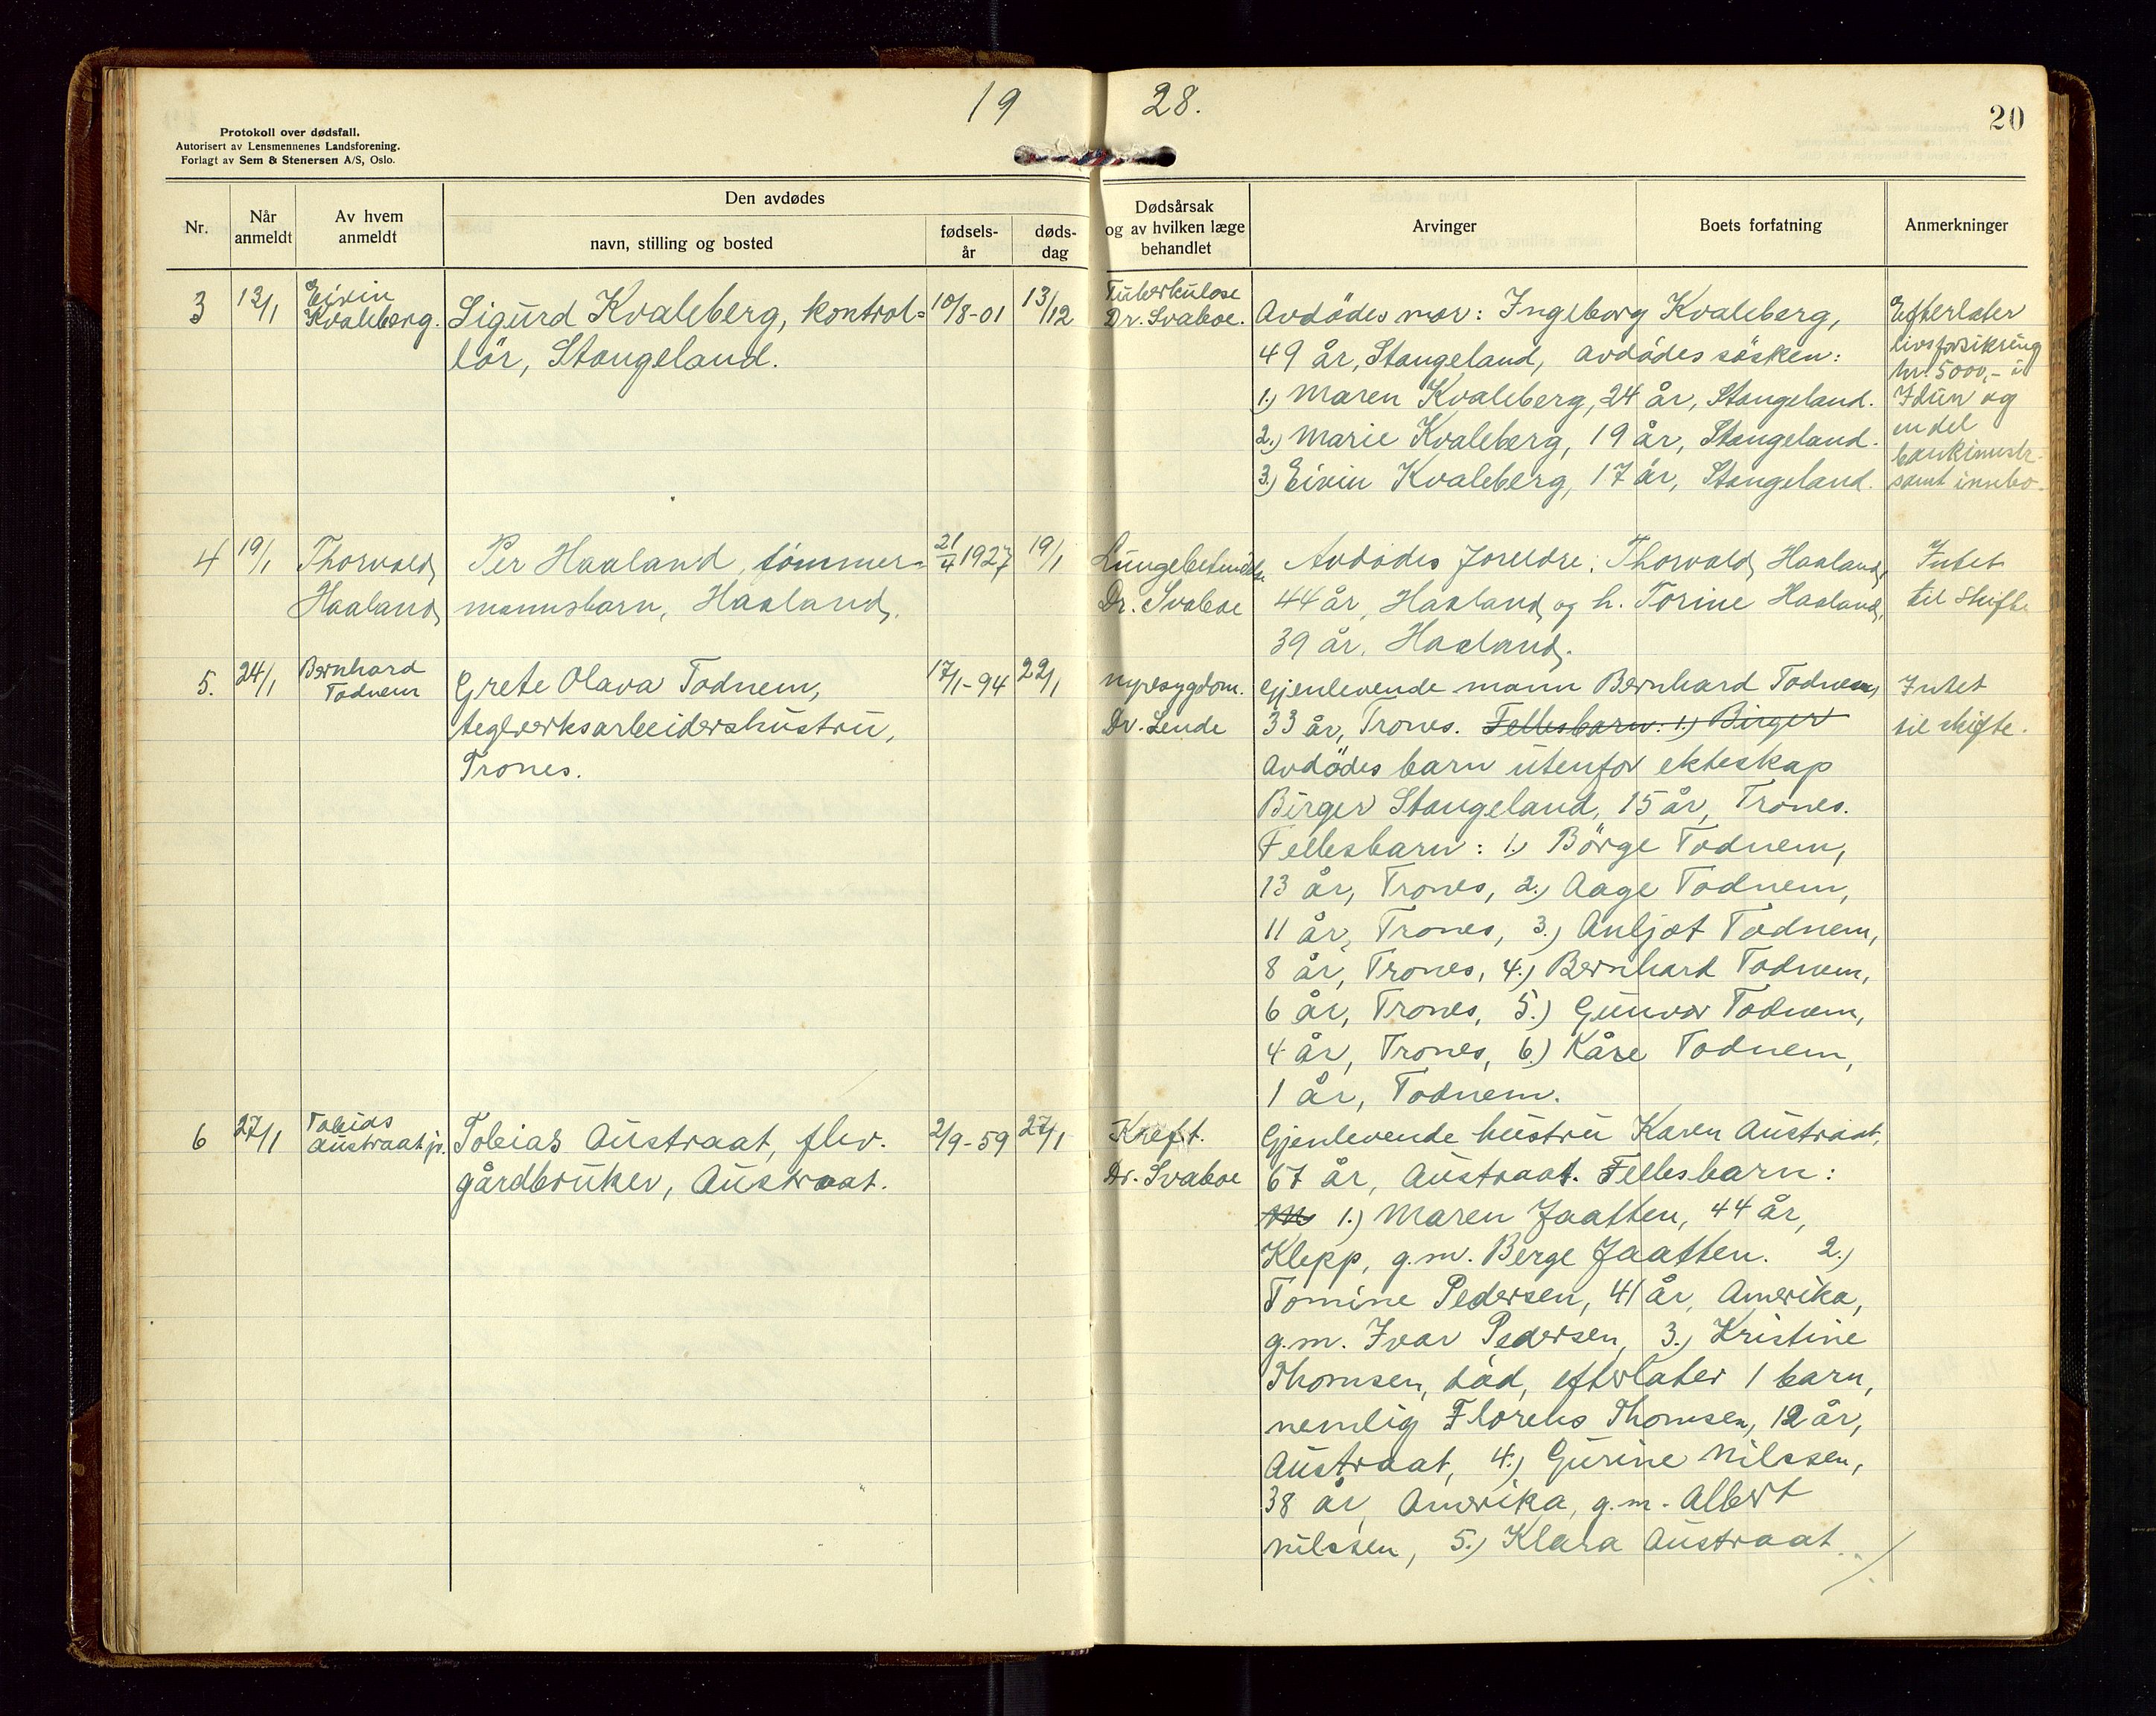 19 28.
20
Protokoll over dødsfall.
Autorisert av Lensmennenes Landsforening.
Forlagt av Sem & Stenersen A/S, Oslo.
Nr.
Når anmeldt
Av hvem anmeldt
Den avdødes
navn, stilling og bosted
fødsels-år
døds-dag
Dødsårsak og av hvilken læge behandlet
Arvinger
Boets forfatning
Anmerkninger
3
13/1
Eivin
Kvaleberg.
Sigurd Kvaleberg, kontrol=
lör, Stangeland.
10/8-01
13/12
Tuberkulose
Dr. Svaboe.
Avdödes mor: Ingeborg Kvaleberg,
49 år, Stangeland, avdödes sösken:
1.) Maren Kvaleberg, 24 år, Stangeland.
2.) Marie Kvaleberg, 19 år, Stangeland.
3.) Eivin Kvaleberg, 17 år, Stangeland.
Efterlater
livsforsikring
kr. 5000,- i
Idun og
en del
bankinnsk.
samt innbo.
4
19/1
Thorvald
Haaland
Per Haaland, tömmer=
mannsbarn, Haaland.
21/4 1927
19/1
Lungebetendelse
Dr. Svaboe
Avdödes foreldre: Thorvald Haaland,
44 år, Haaland og h. Torine Haaland,
39 år, Haaland.
Intet
til skifte
5.
24/1
Bernhard
Todnem
Grete Olava Todnem,
teglverksarbeidershustru,
Trones.
17/1-94
22/1
nyresygdom.
Dr. Lende
Gjenlevende mann Bernhard Todnem,
33 år, Trones. Fellesbarn: 1.) Birger
Avdödes barn utenfor ekteskap
Birger Stangeland, 15 år, Trones.
Fellesbarn: 1.) Börge Todnem,
13 år, Trones, 2.) Aage Todnem,
11 år, Trones, 3.) Anljot Todnem,
8 år, Trones, 4.) Bernhard Todnem,
6 år, Trones, 5.) Gunvor Todnem,
4 år, Trones, 6.) Kåre Todnem,
1 år, Todnem.
Intet
til skifte.
6
27/1
Tobias
Austraat jr.
Tobias Austraat, fhv.
gårdbruker, Austraat.
2/9-59
27/1
Kreft.
Dr. Svaboe
Gjenlevende hustru Karen Austraat,
67 år, Austraat. Fellesbarn:
M 1.) Maren Jaatten, 44 år,
Klepp, g.m. Berge Jaatten. 2.)
Tomine Pedersen, 41 år, Amerika,
g.m. Ivar Pedersen, 3.) Kristine
Thomsen, död, efterlater 1 barn,
nemlig Florens Thomsen, 12 år,
Austraat, 4.) Gurine Nilssen,
38 år, Amerika, g.m. Albert
Nilssen, 5.) Klara Austraat